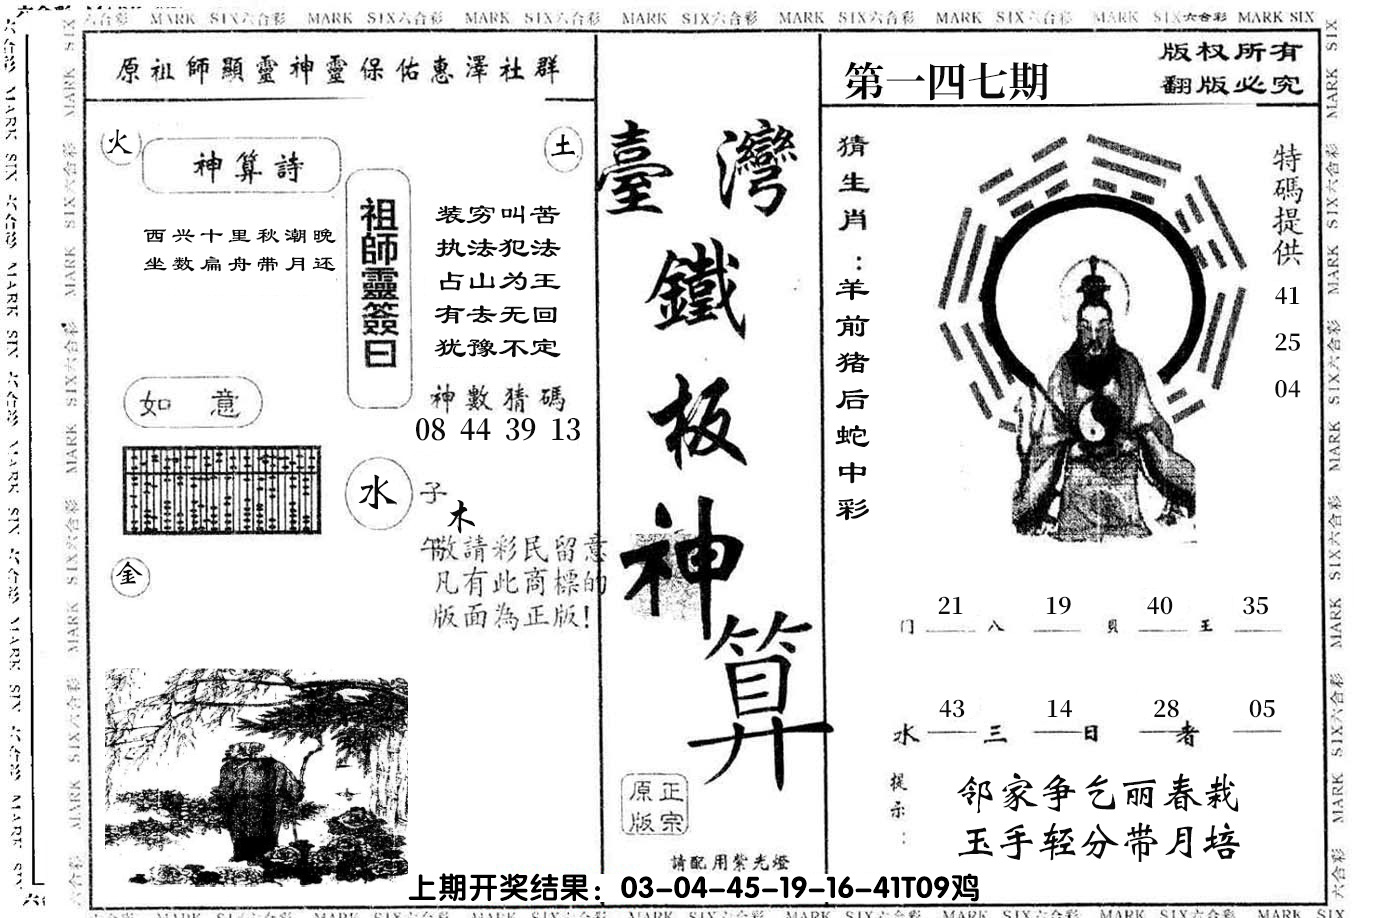 六合彩 MARK SIX六合彩 MARK SIX六合彩 MARK SIX六合彩 MARK SIX六合彩 MARK SIX六合彩 MARK SIX六合彩 MARK SIX六合彩 MARK SIX
原祖師顯靈神靈保佑惠澤社群
火
土
神算詩
西兴十里秋潮晚
坐数扁舟带月还
祖師靈簽曰
装穷叫苦
执法犯法
占山为王
有去无回
犹豫不定
神數猜碼
08 44 39 13
如意
水
子
木
午
金
敬請彩民留意
凡有此商標的
版面為正版!
臺灣
鐵
板
神
算
正宗
原版
請配用紫光燈
第一四七期
版权所有
翻版必究
猜生肖：羊前猪后蛇中彩
特碼提供
41
25
04
21 19 40 35
门 八 貝 王
43 14 28 05
水 三 日 者
提示：
邻家争乞丽春栽
玉手轻分带月培
上期开奖结果：03-04-45-19-16-41T09鸡